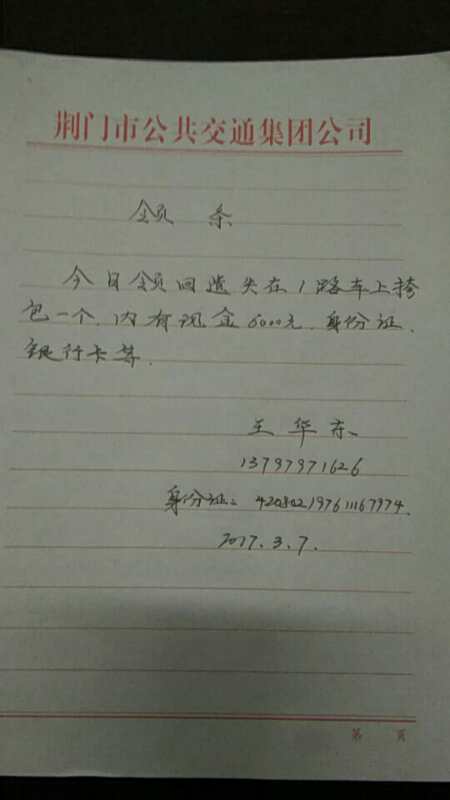 荆门市公共交通集团公司
领条
今日领回遗失在1路车上挎
包一个，内有现金6000元、身份证、
银行卡等.
王华东
13797971626
身份证：420802197611167974.
2017.3.7.
第 页